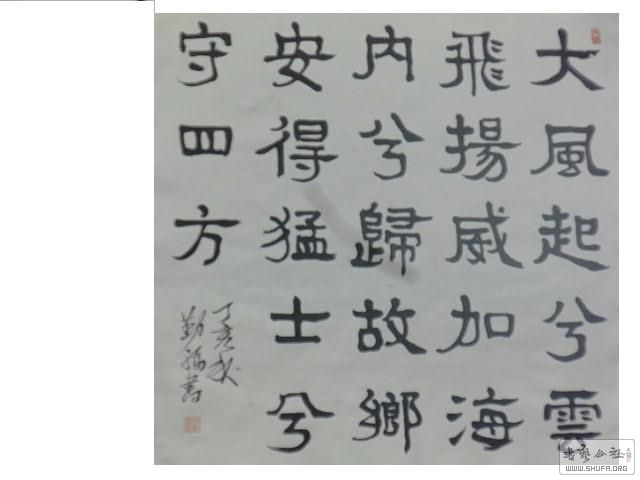 大風起兮雲
飛揚威加海
内兮歸故鄉
安得猛士兮
守四方
丁亥秋
勤福書
書藝公社
WWW.SHUFA.ORG